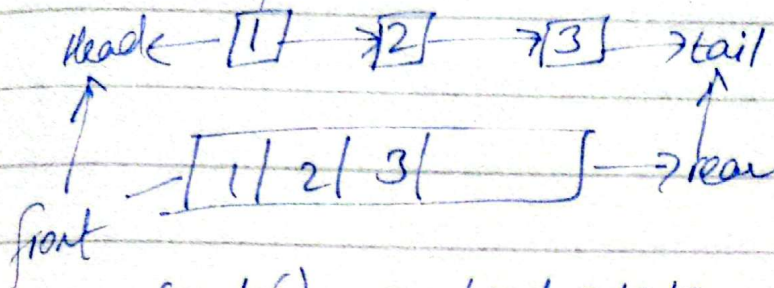 Head 1 2 3 tail
1 2 3 rear
front